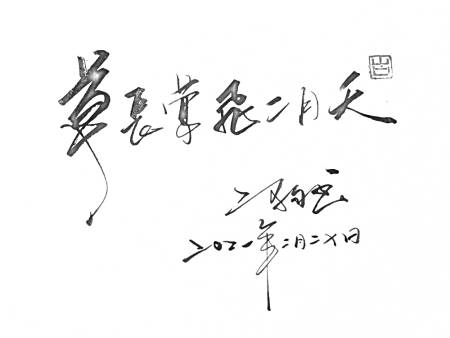 草長莺飛二月天
二〇二一年二月二十日